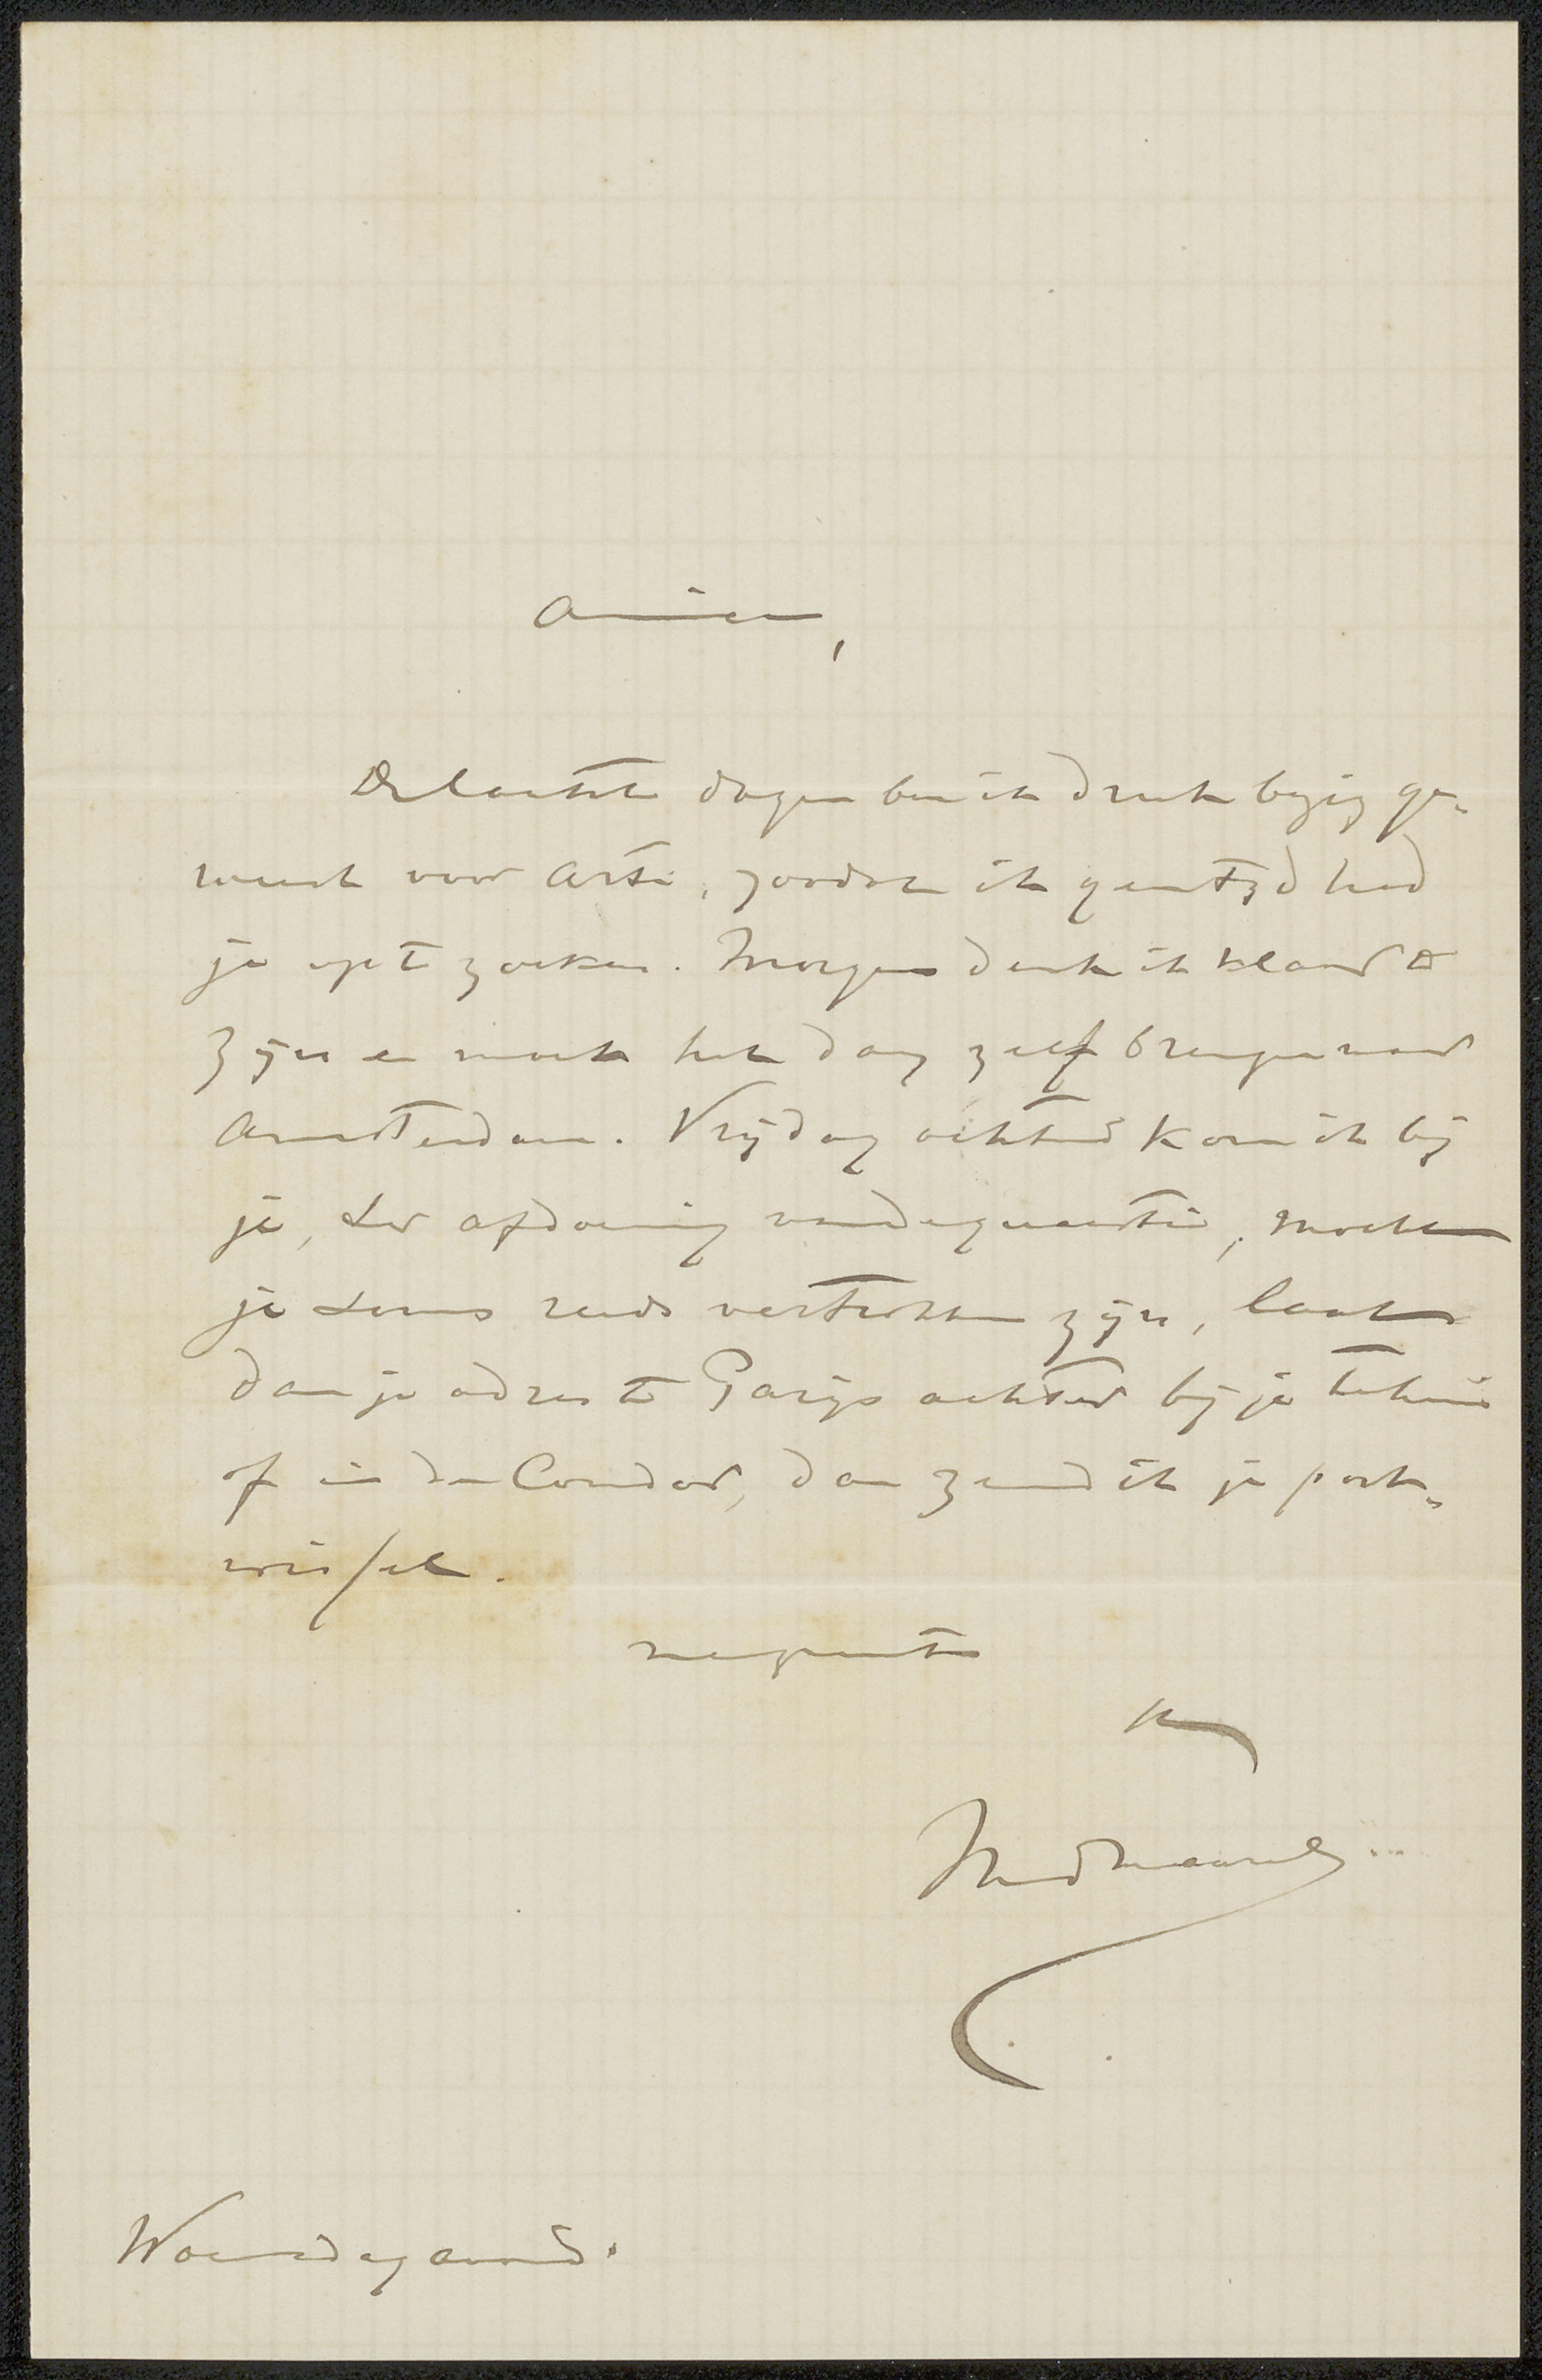 Amice,
De laatste dagen ben ik druk bezig ge-
weest voor Arti, zoodat ik geen tijd had
je op te zoeken. Morgen denk ik klaar te
zijn en moet het dan zelf brengen naar
Amsterdam. Vrijdag ochtend kom ik bij
je, ter afdoening van de quaestie, mocht
je soms reeds vertrokken zijn, laat
dan je adres te Parijs achter bij je tehuis
of in den Condor, dan zend ik je post-
wissel.
Woensdagavond.